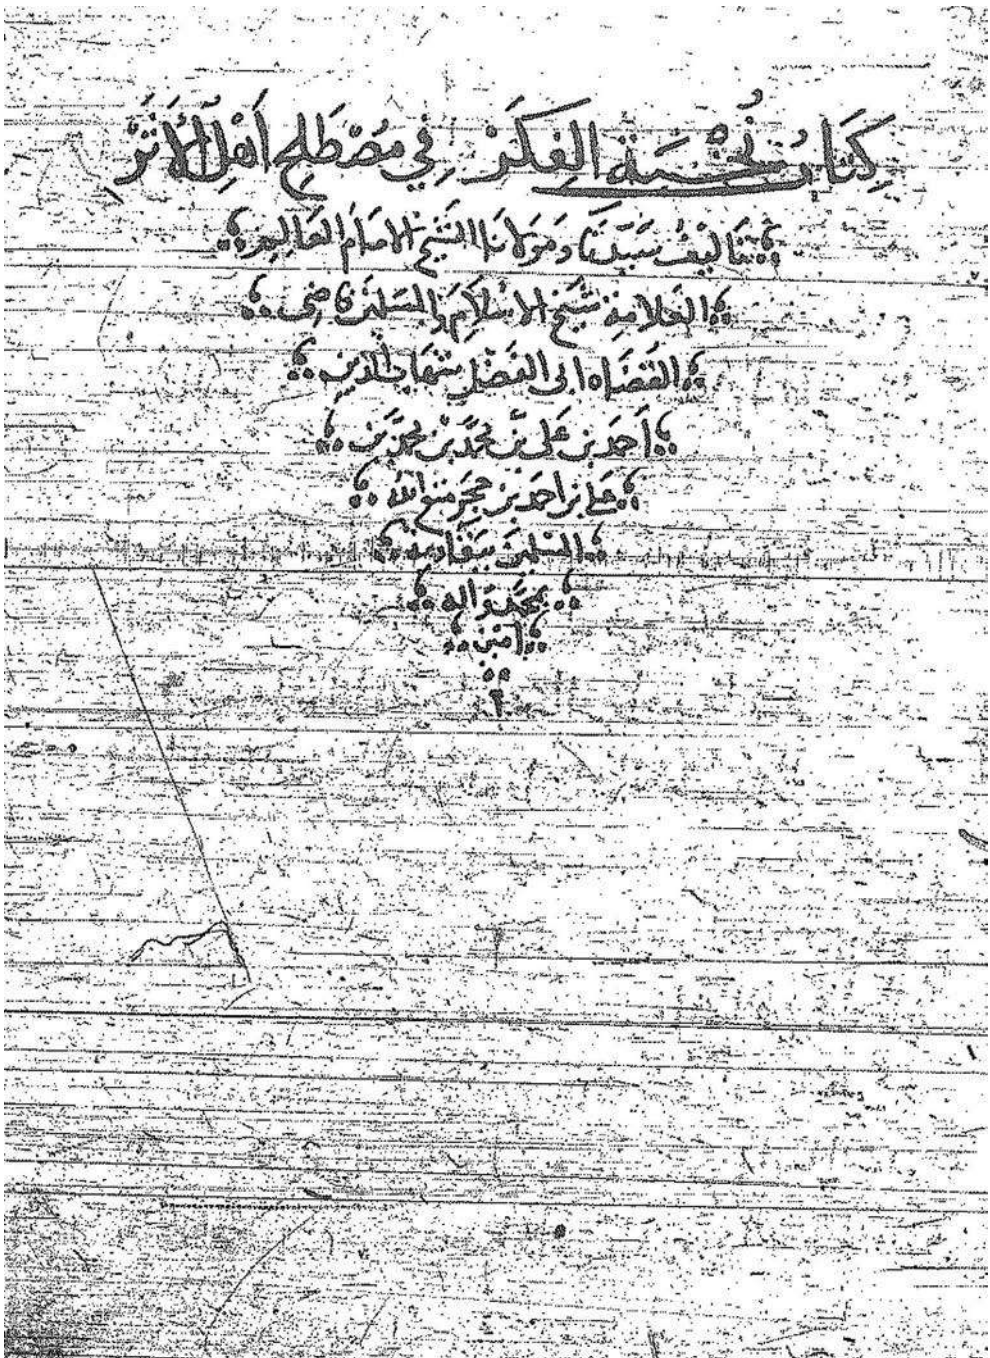 كِتَابُ نُخْبَةِ الفِكَرْ فِي مُصْطَلِحِ أَهْلِ الأَثَرْ
تاليف سيدنا ومولانا الشيخ الامام العالم
العلامة شيخ الاسلام والمسلمين قاضى
القضاه ابى الفضل شهاب الدين
احمد بن على بن محمد بن محمد بن
على بن احمد بن حجر متع الله
المسلمين ببقائه
بمحمد واله
امين